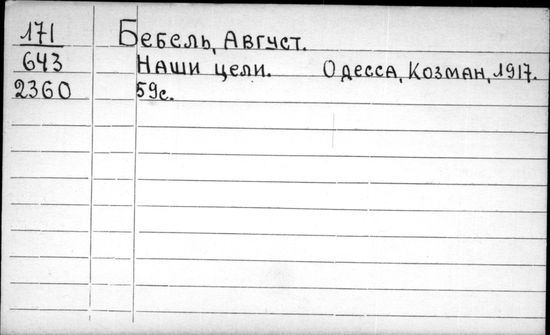 171 Бебель, Август.
643 Наши цели. Одесса, Козман, 1917.
2360 59с.